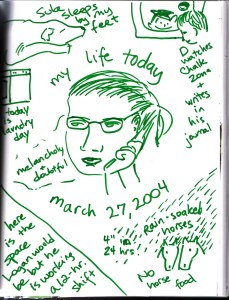 Sula
sleeps
by my
feet
D
watches
Chalk
zone
+
writes
in his
journal
my life today
today
is
laundry
day
melancholy
doubtful
march 27, 2004
here
is the
space
Logan would
be but he
is working
a 12-hr.
shift
Rain-soaked
horses
4" in
24 hrs.
No
horse food